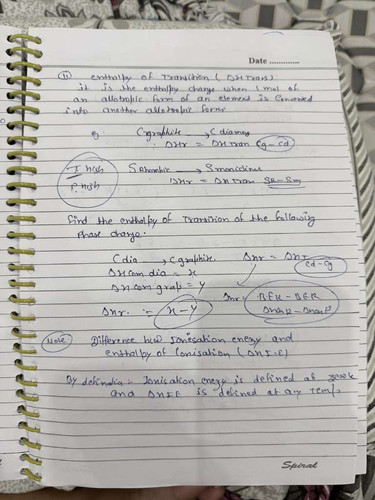 Date ............
(11) enthalpy of Transition (ΔH Tran)
it is the enthalpy change when 1 mol of
an allotropic form of an element is Converted
into another allotropic form
Cgraphite → C diamond
ΔHr = ΔH Tran Cg-cd
S Rhombic → S monoclinic
ΔHr = ΔH Tran SR-Sm
find the enthalpy of Transition of the following
Phase change.
C dia → C graphite.
ΔHr = ΔH T Cd-Cg
ΔH com dia = x
ΔH com grap = y
ΔHr. = x-y
Δnr =
BER - BEP
ΔHCR - ΔHCP
Note
Difference b/w Ionisation energy and
enthalpy of Ionisation (ΔH I.E)
By defination = Ionisation energy is defined at zero k
and ΔH IE is defined at any Temp.
Spiral